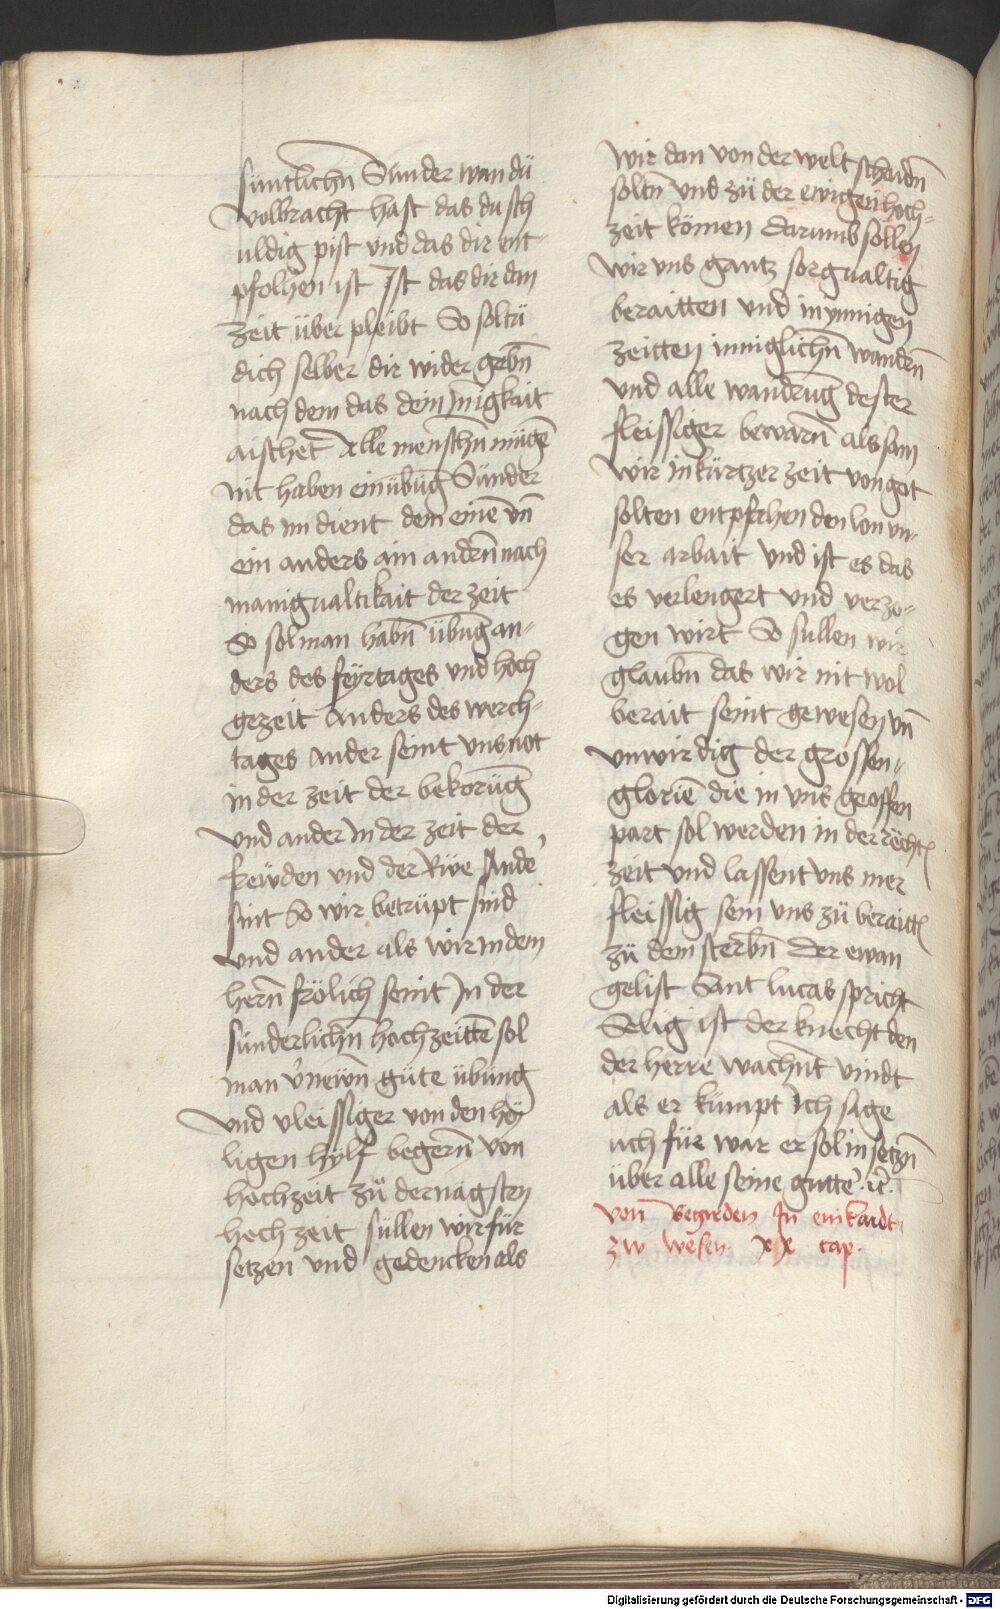 süntlichn̄ Sünder wan dü
volbracht hast das du sch
uldig pist vnd das dir ent
pfolhen ist Ist das dir dan
zeit über pleibt So soltü
dich selber dir wider gebn̄
nach dem das dein Inigkait
aischet Alle menschn̄ mügē
nit haben ein übūg Sünder
das im dient dem einē vn̄
ein anders ain andrn̄ nach
manigualtikait der zeit
So sol man habn̄ übūg an-
ders des feyrtages vnd hoch
gezeit anders des werch-
tages ander seint vns not
in der zeit der bekorūg
vnd ander In der zeit der
frewden vnd der Rüe Ande'
sint So wir betrüpt sind
vnd ander als wir in dem
hern̄ frölich seint In der
sünderlichn̄ hochzeittē sol
man v'newn̄ güte übung
vnd vleissiger von den hey
ligen hylf begern̄ von
hochzeit zü der nagsten
hoch zeit süllen wir für
setzen vnd gedencken als
wir dan von der welt schaidn̄
soltn̄ vnd zü der ewigen hoch-
zeit kömen darumb sollen
wir vns gantz sorgualtig
beraitten vnd in ynnigen
zeitten inniglichn̄ wandrn̄
vnd alle wandrūg dester
fleissiger bewarn̄ als sam
wir in kürtzer zeit von got
solten entpfahen den lon vn-
ser arbait vnd ist es das
es verlengert vnd verzo-
gen wirt So sullen wir
glaubn̄ das wir nit wol
berait seint gewesen vn̄
vnwirdig der grossen
glorie die in vns geoffen
part sol werden in der recht
zeit vnd lassent vns mer
fleissig sein vns zü beraitt
zü dem sterbn̄ Der ewan
gelist Sant lucas spricht
Selig ist der knecht den
der herre wachn̄t vindt
als er kümpt Ich sage
uch für war er sol in setzn̄
über alle seine gutte' ꝛc̄.
von Begirden In
zw wesen xx cap.
Digitalisierung gefördert durch die Deutsche Forschungsgemeinschaft - DFG